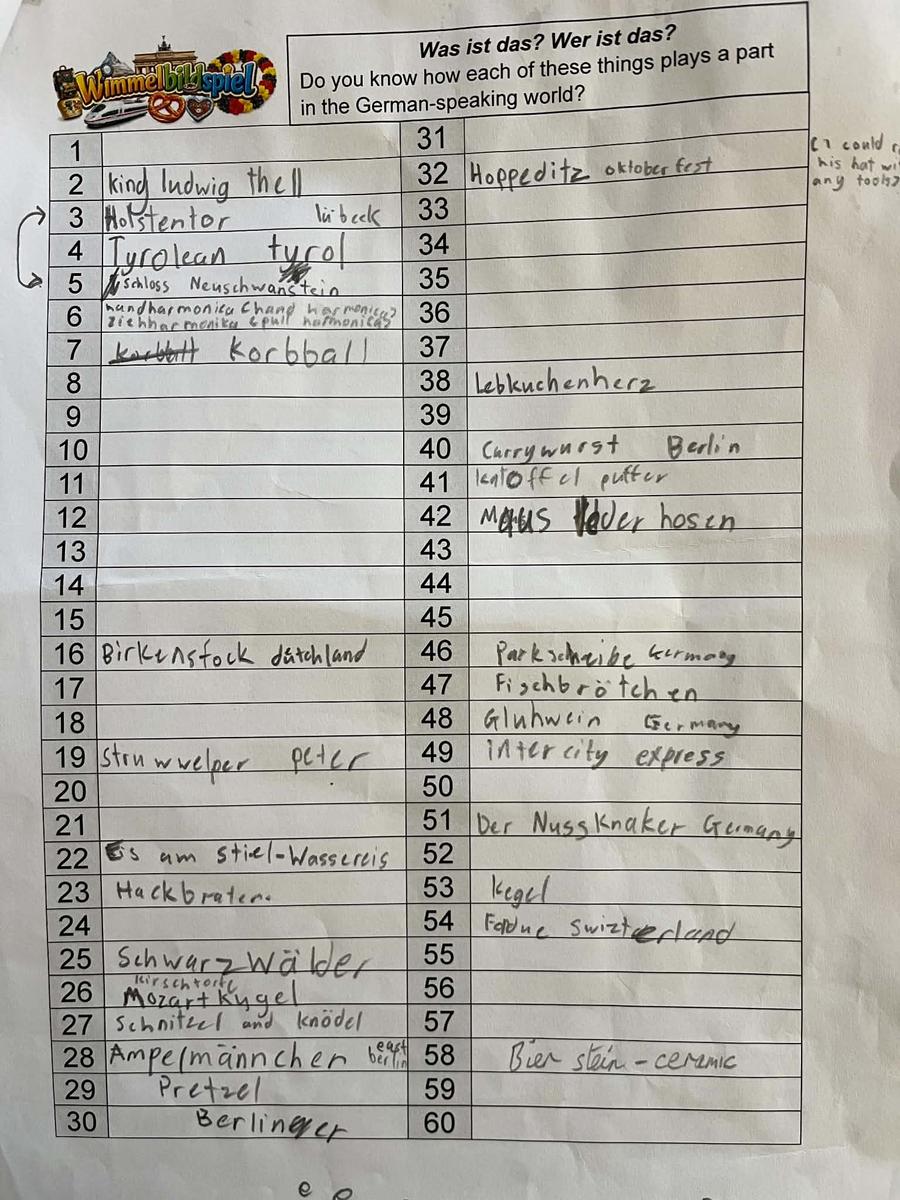 Wimmelbildspiel
Was ist das? Wer ist das?
Do you know how each of these things plays a part
in the German-speaking world?
1
2 king ludwig the II
3 Holstentor lübeck
4 Tyrolean tyrol
5 schloss Neuschwanstein
6 handharmonica Chand harmonica?
ziehharmonika & pull harmonicas
7 Korbball
8
9
10
11
12
13
14
15
16 Birkenstock dütchland
17
18
19 Struwwelper peter
20
21
22 Eis am Stiel-Wassereis
23 Hackbraten.
24
25 Schwarzwälder
kirschtorte
26 Mozart Kygel
27 Schnitzel and knödel
28 Ampelmännchen east
berlin
29 Pretzel
30 Berlinger
31
32 Hoppeditz oktoberfest
33
34
35
36
37
38 Lebkuchenherz
39
40 Currywurst Berlin
41 katoffel puffer
42 lederhosen
43
44
45
46 Parkscheibe Germany
47 Fischbrötchen
48 Gluhwein Germany
49 intercity express
50
51 Der Nussknaker Germany
52
53 Kegel
54 Fodue Swizterland
55
56
57
58 Bier stein - ceramic
59
60
could
his hat
any tools?